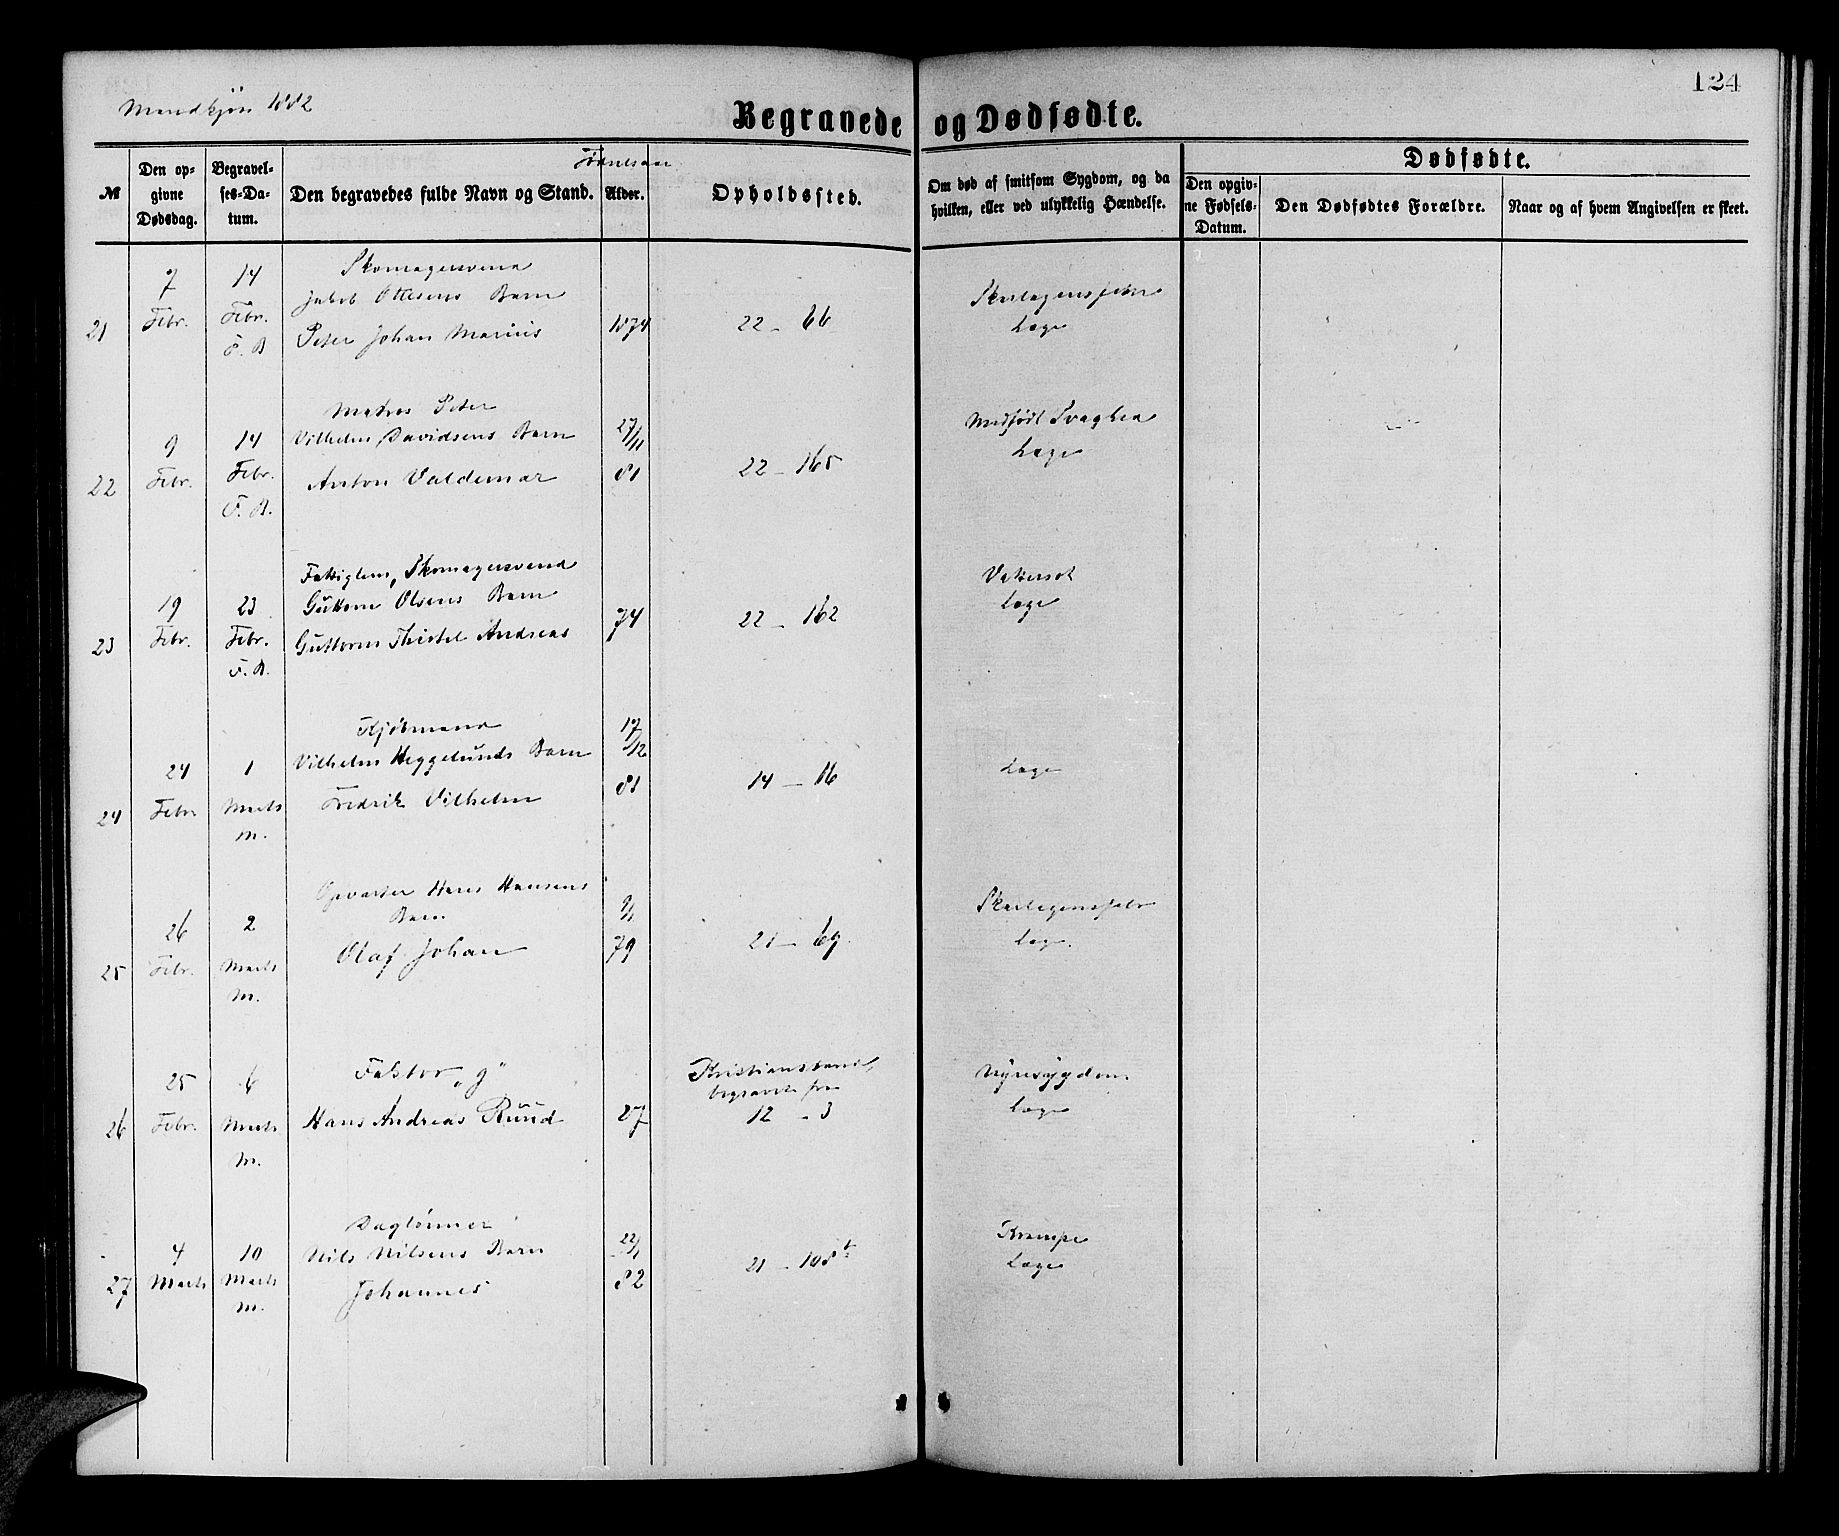 124
Mandkjøn 1882
Begravede og Dødfødte.
Fødselsaar
№
Den op-
givne
Dødsdag.
Begravel-
ses-Da-
tum.
Den begravedes fulde Navn og Stand.
Alder.
Opholdssted.
Om død af smitsom Sygdom, og da
hvilken, eller ved ulykkelig Hændelse.
Dødfødte.
Den opgiv-
ne Fødsels-
Datum.
Den Dødfødtes Forældre.
Naar og af hvem Angivelsen er skeet.
21
7
Febr.
14
Febr.
F. B
Skomagersvend
Jakob Ottesens Barn
Peter Johan Marius
1874
22 - 66
Skarlagensfeber
Læge
22
9
Febr.
14
Febr.
F. B.
Matros Peter
Vilhelm Davidsens Barn
Anton Valdemar
27/11
81
22 - 165
Medfødt Svaghed
Læge
23
19
Febr.
23
Febr.
F. B.
Fattiglem, Skomagersvend
Guttorm Olsens Barn
Guttorm Thistel Andreas
74
22 - 162
Vattersot
Læge
24
24
Febr
1
Marts
m.
Kjøbmand
Vilhelm Heggelunds Barn
Fredrik Vilhelm
17/12
81
14 - 16
Læge
25
26
Febr.
2
Marts
m.
Opvarter Hans Hansens
Barn
Olaf Johan
9/1
79
21 - 69
Skarlagensfebr
Læge.
26
25
Febr.
6
Marts
m.
Faktor „g"
Hans Andreas Ruud
27
Kristianssand,
begravet fra
12 - 3
Nyresygdom
Læge
27
4
Marts
10
Marts
m.
Daglønner
Nils Nilsens Barn
Johannes
22/1
82
21 - 108 b
Krampe
Læge